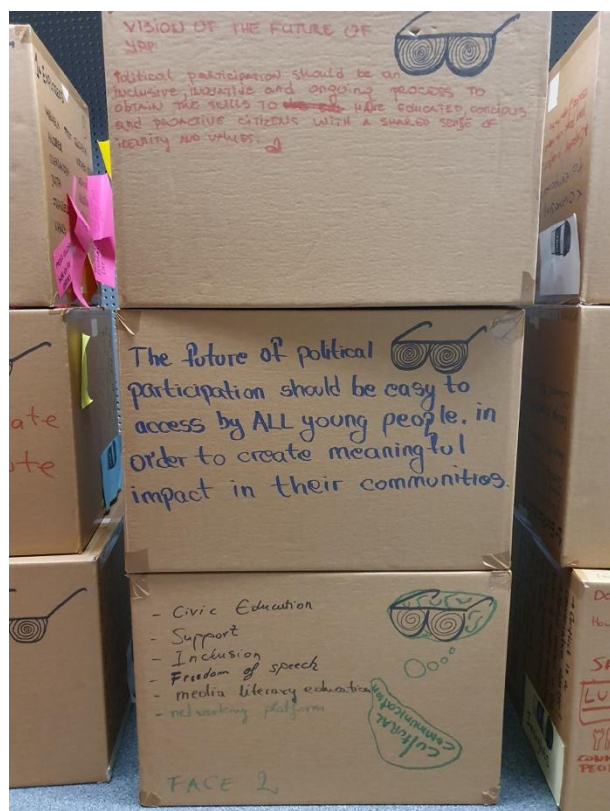 VISION OF THE FUTURE OF
YPP:
Political participation should be an
inclusive, inovative and ongoing process to
obtain the skills to have educated, concious
and proactive citizens with a shared sense of
identity and values.
The future of political
participation should be easy to
access by ALL young people, in
order to create meaningful
impact in their communities.
- Civic Education
- Support
- Inclusion
- Freedom of speech
- media literary education
- networking platform
CULTURAL
COMMUNICATION
FACE 2